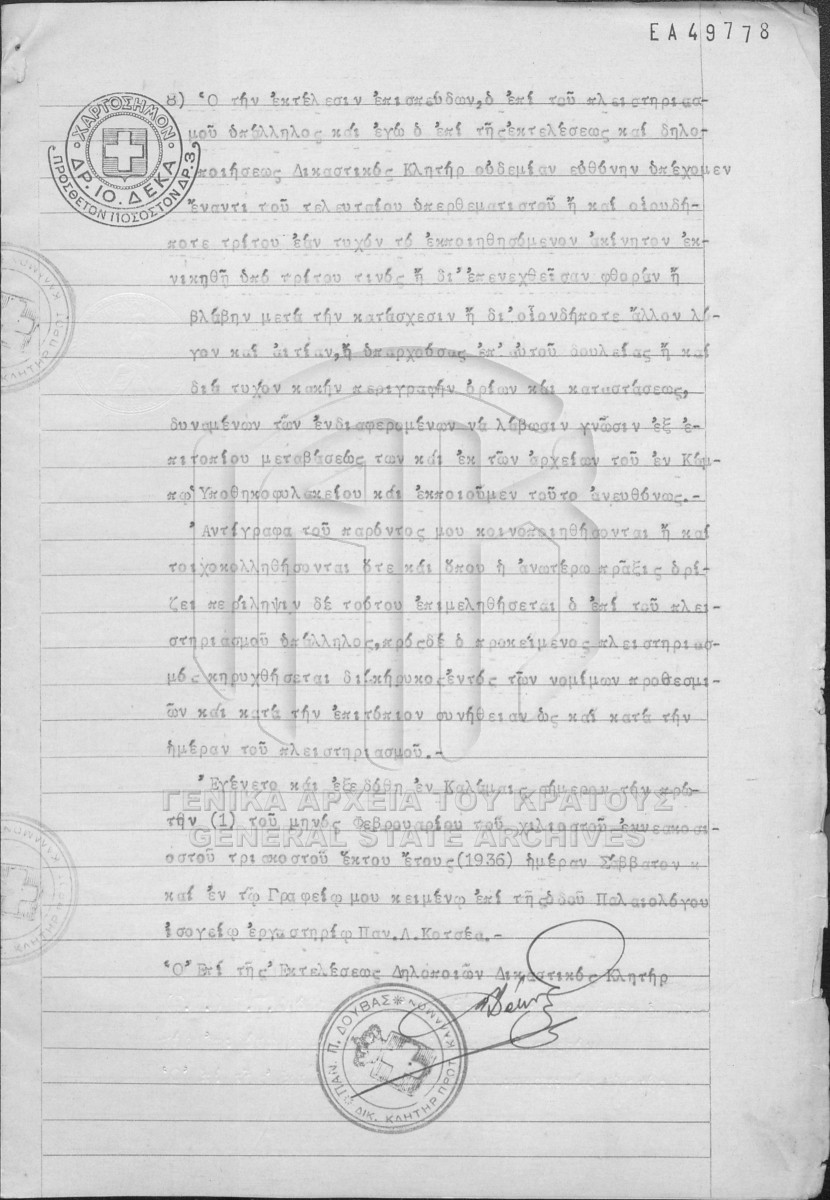 ΕΑ49778
ΧΑΡΤΟΣΗΜΟΝ
ΔΡ. 10. ΔΕΚΑ
ΠΡΟΣΘΕΤΟΝ ΠΟΣΟΣΤΟΝ ΔΡ.3
8) Ὁ τήν ἐκτέλεσιν ἐπισπεύδων, ὁ ἐπί τοῦ πλειστηριασ-
μοῦ ὑπάλληλος καί ἐγώ ὁ ἐπί τῆς ἐκτελέσεως καί δηλο-
ποιήσεως Δικαστικός Κλητήρ οὐδεμίαν εὐθύνην ὑπέχομεν
ἔναντι τοῦ τελευταίου ὑπερθεματιστοῦ ἤ καί οἱουδή-
ποτε τρίτου ἐάν τυχόν τό ἐκποιηθησόμενον ἀκίνητον ἐκ-
νικηθῇ ὑπό τρίτου τινός ἤ δι'ἐπενεχθεῖσαν φθοράν ἤ
βλάβην μετά τήν κατάσχεσιν ἤ δι'οἱονδήποτε ἄλλον λό-
γον καί αἰτίαν, ἤ ὑπαρχούσας ἐπ'αὐτοῦ δουλείας ἤ καί
διά τυχον κακήν περιγραφήν ὁρίων καί καταστάσεως,
δυναμένων τῶν ἐνδιαφερομένων νά λάβωσιν γνῶσιν ἐξ ἐ-
πιτοπίου μεταβάσεώς των καί ἐκ τῶν ἀρχείων τοῦ ἐν Κάμ-
πῳ Ὑποθηκοφυλακείου καί ἐκποιοῦμεν τοῦτο ἀνευθύνως.-
Ἀντίγραφα τοῦ παρόντος μου κοινοποιηθήσονται ἤ καί
τοιχοκολληθήσονται ὅτε καί ὅπου ἡ ἀνωτέρω πρᾶξις ὁρί-
ζει περίληψιν δέ τούτου ἐπιμεληθήσεται ὁ ἐπί τοῦ πλει-
στηριασμοῦ ὑπάλληλος, πρόςδέ ὁ προκείμενος πλειστηριασ-
μός κηρυχθήσεται διάκήρυκος ἐντός τῶν νομίμων προθεσμι-
ῶν καί κατά τήν ἐπιτόπιον συνήθειαν ὡς καί κατά τήν
ἡμέραν τοῦ πλειστηριασμοῦ.-
Ἐγένετο καί ἐξεδόθη ἐν Καλάμαις σήμερον τήν πρώ-
την (1) τοῦ μηνός Φεβρουαρίου τοῦ χιλιοστοῦ ἐννεακοσι-
οστοῦ τριακοστοῦ ἕκτου ἔτους(1936) ἡμέραν Σάββατον κ
καί ἐν τῷ Γραφείῳ μου κειμένῳ ἐπί τῆς ὁδοῦ Παλαιολόγου
ἰσογείῳ ἐργαστηρίῳ Παν. Λ. Κοτσέα.-
Ὁ Ἐπί τῆς Ἐκτελέσεως Δηλοποιῶν Δικαστικός Κλητήρ
ΠΑΝ. Π. ΔΟΥΒΑΣ
ΔΙΚ. ΚΛΗΤΗΡ ΠΡΩΤ. ΚΑΛΑΜΩΝ
ΓΕΝΙΚΑ ΑΡΧΕΙΑ ΤΟΥ ΚΡΑΤΟΥΣ
GENERAL STATE ARCHIVES